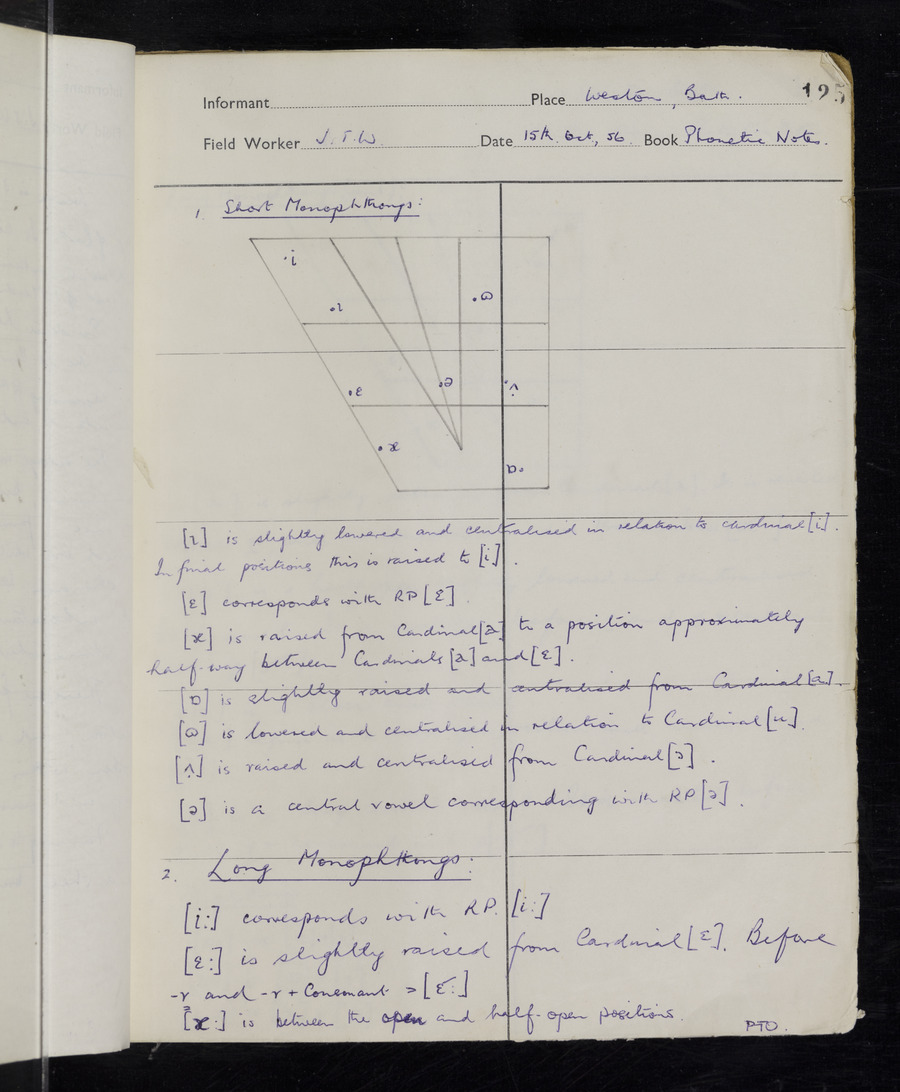 Informant Place Weston, Bath. 195
Field Worker J.T.W. Date 15th. Oct., 56. Book Phonetic Notes.
1. Short Monophthongs:
i
ɩ
ɷ
ɛ
ə
ʌ̣
æ
ɒ
[ɩ] is slightly lowered and centralised in relation to cardinal [i].
In final positions this is raised to [i].
[ɛ] corresponds with RP [ɛ].
[æ] is raised from Cardinal [a] to a position approximately
half-way between Cardinals [a] and [ɛ].
[ɒ] is slightly raised and centralised from Cardinal [ɑ].
[ɷ] is lowered and centralised in relation to Cardinal [u].
[ʌ̣] is raised and centralised from Cardinal [ɔ].
[ə] is a central vowel corresponding with RP [ə].
2. Long Monophthongs:
[i:] corresponds with RP. [i:]
[ɛ:] is slightly raised from Cardinal [ɛ]. Before
-r and -r + Consonant > [ɛ̄:]
[æ:] is between the open and half-open positions.
PTO.